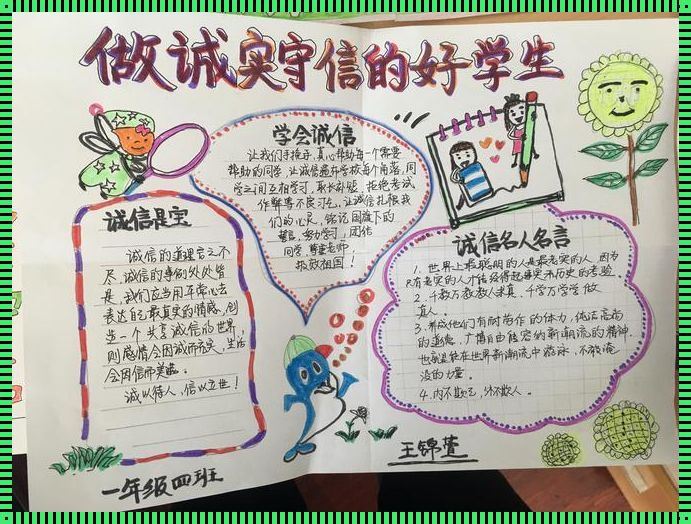 做诚实守信的好学生
学会诚信
让我们手挽手,真心帮助每一个需要
帮助的同学,让诚信遍开学校每个角落,同
学之间互相学习,取长补短,拒绝考试
作弊等不良习气,让诚信扎根我
们的心灵,铭记国旗下的
誓言,努力学习,团结
同学,尊重老师,
报效祖国!
诚信是宝
诚信的道理言之不
尽,诚信的事例处处皆
是,我们应当用平常心去
表达自己最真实的情感,创
造一个共享诚信的世界,
则感情会因诚而充实,生活
会因信而美丽。
诚以待人,信以立世!
诚信名人名言
1. 世界上最聪明的人是最老实的人,因为
只有老实的人才能经得起事实和历史的考验
2. 千教万教教人求真,千学万学学做
真人。
3. 养成他们有耐劳作的体力,纯洁高尚
的道德,广博自由能容纳新潮流的精神,
也就是能在世界新潮流中游泳,不被淹
没的力量。
4. 内不欺己,外不欺人。
王锦萱
一年级四班